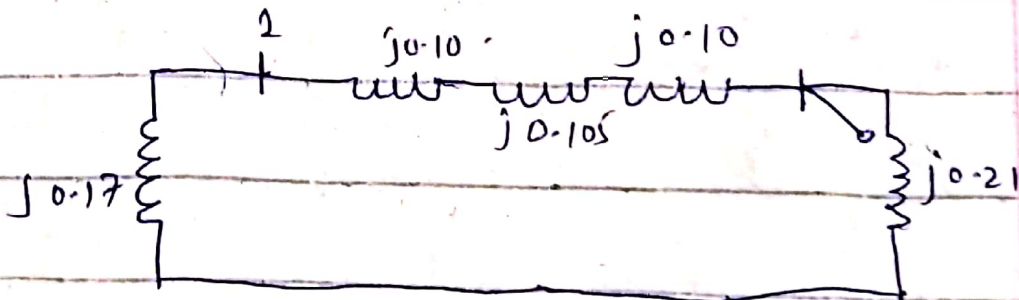 1
j0.10
j0.10
j0.105
j0.17
j0.21